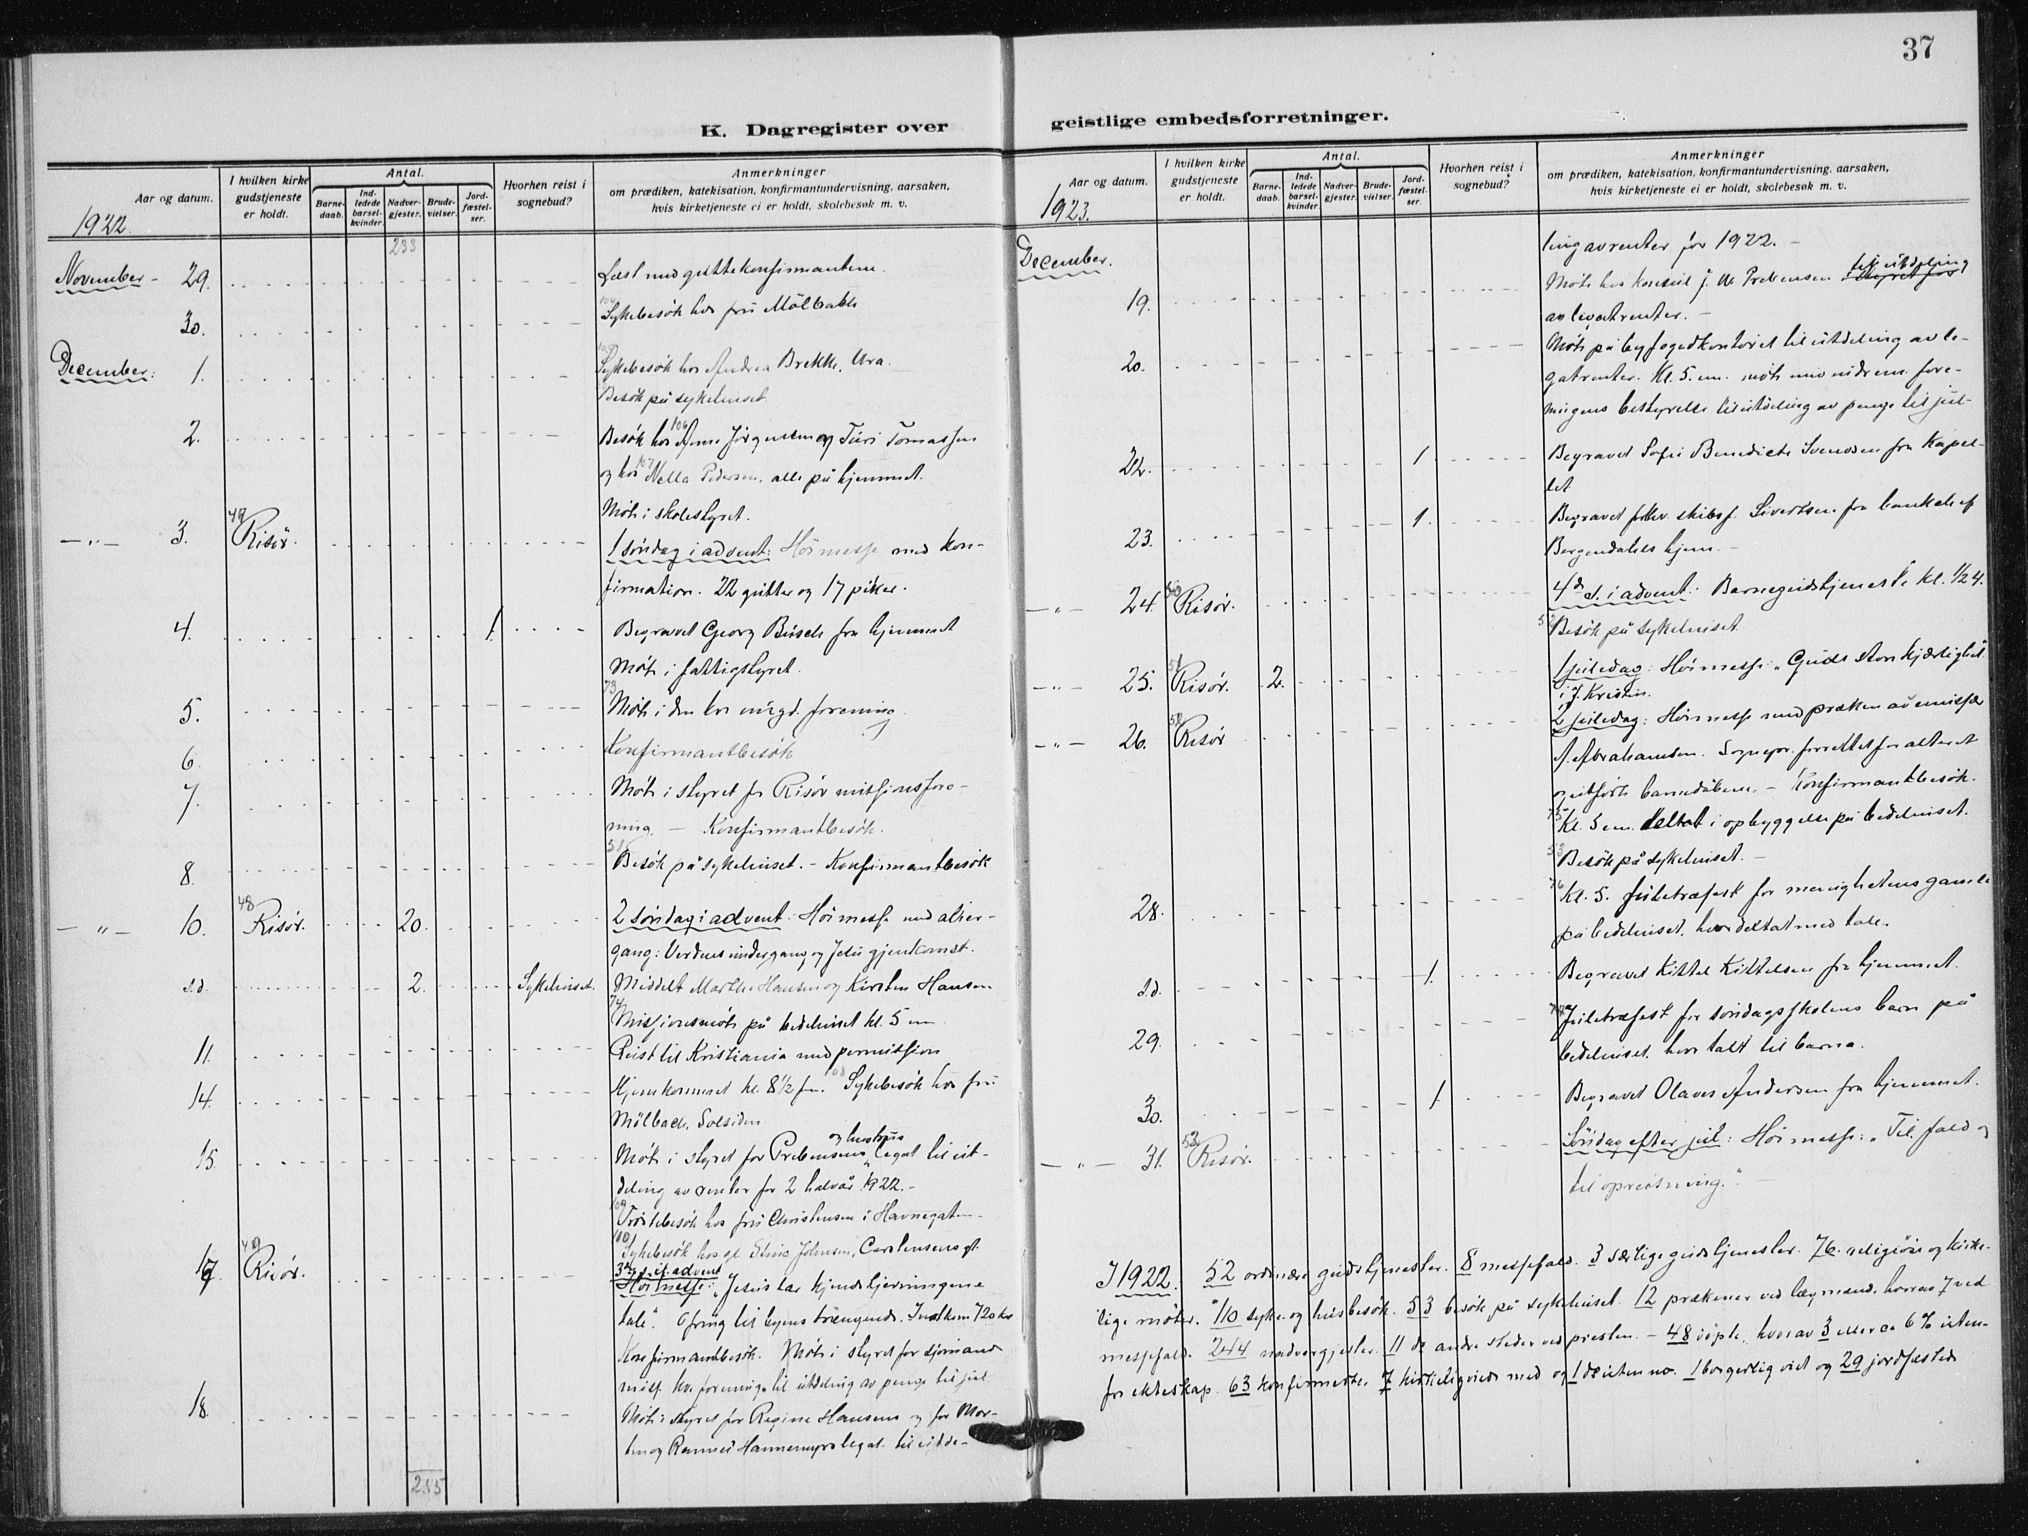 37
K. Dagregister over
geistlige embedsforretninger.
Aar og datum.
I hvilken kirke gudstjeneste er holdt.
Antal.
Barne-daab.
Ind-ledede barsel-kvinder.
Nadver-gjester.
Brude-vielser.
Jord-fæstel-ser.
Hvorhen reist i sognebud?
Anmerkninger
om prædiken, katekisation, konfirmantundervisning, aarsaken,
hvis kirketjeneste ei er holdt, skolebesøk m. v.
1922
233
November - 29. Læst med guttekonfirmantene.
30. Sykebesök hos fru Mölbach
December: 1. Sykebesök hos Andrea Brekke, Ura.
Besök på sykehuset
2. Besök hos Anne Jörgensen og Turi Tomassen
og hos Nella Pedersen, alle på hjemmet.
Möte i skolestyret.
-"- 3. 47 Risör. 1 söndag i advent: Höimesse med kon-
firmation. 22 gutter og 17 piker.
4. 1. Begravet Georg Busch fra hjemmet
Möte i fattigstyret.
5. 73 Möte i den kv. forening
6. Konfirmantbesök
7. Möte i styret for Risör misjonsfore-
ning. - Konfirmantbesök.
8. Besök på sykehuset. - Konfirmantbesök
-"- 10. 48 Risör. 20. 2 söndag i advent: Höimesse med alter-
gang: Verdens undergang og Jesu gjenkomst.
s.d. 2. Sykehuset. Meddelt Marthe Hansen og Kirsten Hansen
74 Missionsmöte på bedehuset kl. 5 em
11. Reist til Kristiania med permission
14. Hjemkommet kl. 8 1/2 fm. 108 Sykebesök hos fru
Mölbach, Solsiden
15. Möte i styret for Prebensens og hustrus legat til ut-
deling av renter for 2 halvår 1922.-
109 besök hos fru Christensen i Havnegaten.
Sykebesök hos gl. Johnsen, Carstensens gt.
17 49 Risör. 3die s. i advent
Höimesse: "Jesus tar kjendsgjerningene
tale". Ofring til byens trængende. Indkom 720 kr
Konfirmantbesök. Möte i styret for sjömands
miss. kv. forening til utdeling av penge til jul
18. Möte i styret for Regine Hansens og for Mor-
ten og Hannemyrs legat til utde-
255
Aar og datum.
I hvilken kirke gudstjeneste er holdt.
Antal.
Barne-daab.
Ind-ledede barsel-kvinder.
Nadver-gjester.
Brude-vielser.
Jord-fæstel-ser.
Hvorhen reist i sognebud?
Anmerkninger
om prædiken, katekisation, konfirmantundervisning, aarsaken,
hvis kirketjeneste ei er holdt, skolebesøk m. v.
1923.
December. ling av renter for 1922. -
19. Möte hos konsul J. W. Prebensen til utdeling
av legatrenter. -
20. Möte på byfogedkontoret til utdeling av le-
gatrenter. Kl. 5. em. möte fore-
ningens bestyrelse til utdeling av penge til jul-
22. 1 Begravet Sofie Benedicte Svendsen fra Kapel-
let
23. 1. Begravet forhv. skibsf. Sivertsen fra bankchef
Bergendahls hjem. -
-"- 24. 50 Risör. 4de s. i advent: Barnegudstjeneste kl. 1/2 4.
Besök på sykehuset.
-"- 25. 51 Risör. 2. 1 juledag: Höimesse: "Guds store kjærlighet
i J. Kristus.
-"- 26. 52 Risör 2 juledag: Höimesse med præken av emissær
A. Abrahamsen. Sognepr. forrettet for alteret
og utförte barnedåbene. - Konfirmantbesök.
75 Kl. 5 em. deltat i opbyggelse på bedehuset.
53 Besök på sykehuset. -
28. 76 Kl. 5. Juletræfest for menighetens gamle
på bedehuset, hvor deltat med tale.
s.d. 1. Begravet Kittel Kittelsen fra hjemmet.
29. Juletræfest for söndagsskolens barn på
bedehuset, hvor talt til barna.
30. 1 Begravet Olaves Andersen fra hjemmet.
-"- 31. 53 Risör. Söndag efter jul: Höimesse: "Til fald og
til opreisning". -
I 1922. 52 ordinære gudstjenester. 8 messefald. 3 særlige gudstjenester. 76 religiöse og kirke-
lige möter. 110 syke- og husbesök. 53 besök på sykehuset. 12 prækener ved lægmand, hvorav 7 ved
messefald. 244 nadvergjester. 11 do andre steder ved presten. - 48 döpte, hvorav 3 eller ca 6 % uten-
for ekteskap. 63 konfirmerte. 7 kirkelig viede med og 1 do uten no. 1 borgerlig viet og 29 jordfæstede